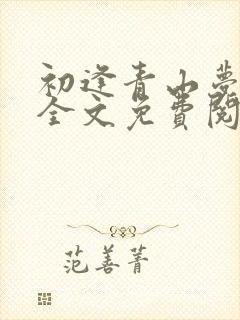 初逢青山梦
全文免费阅
范善菁